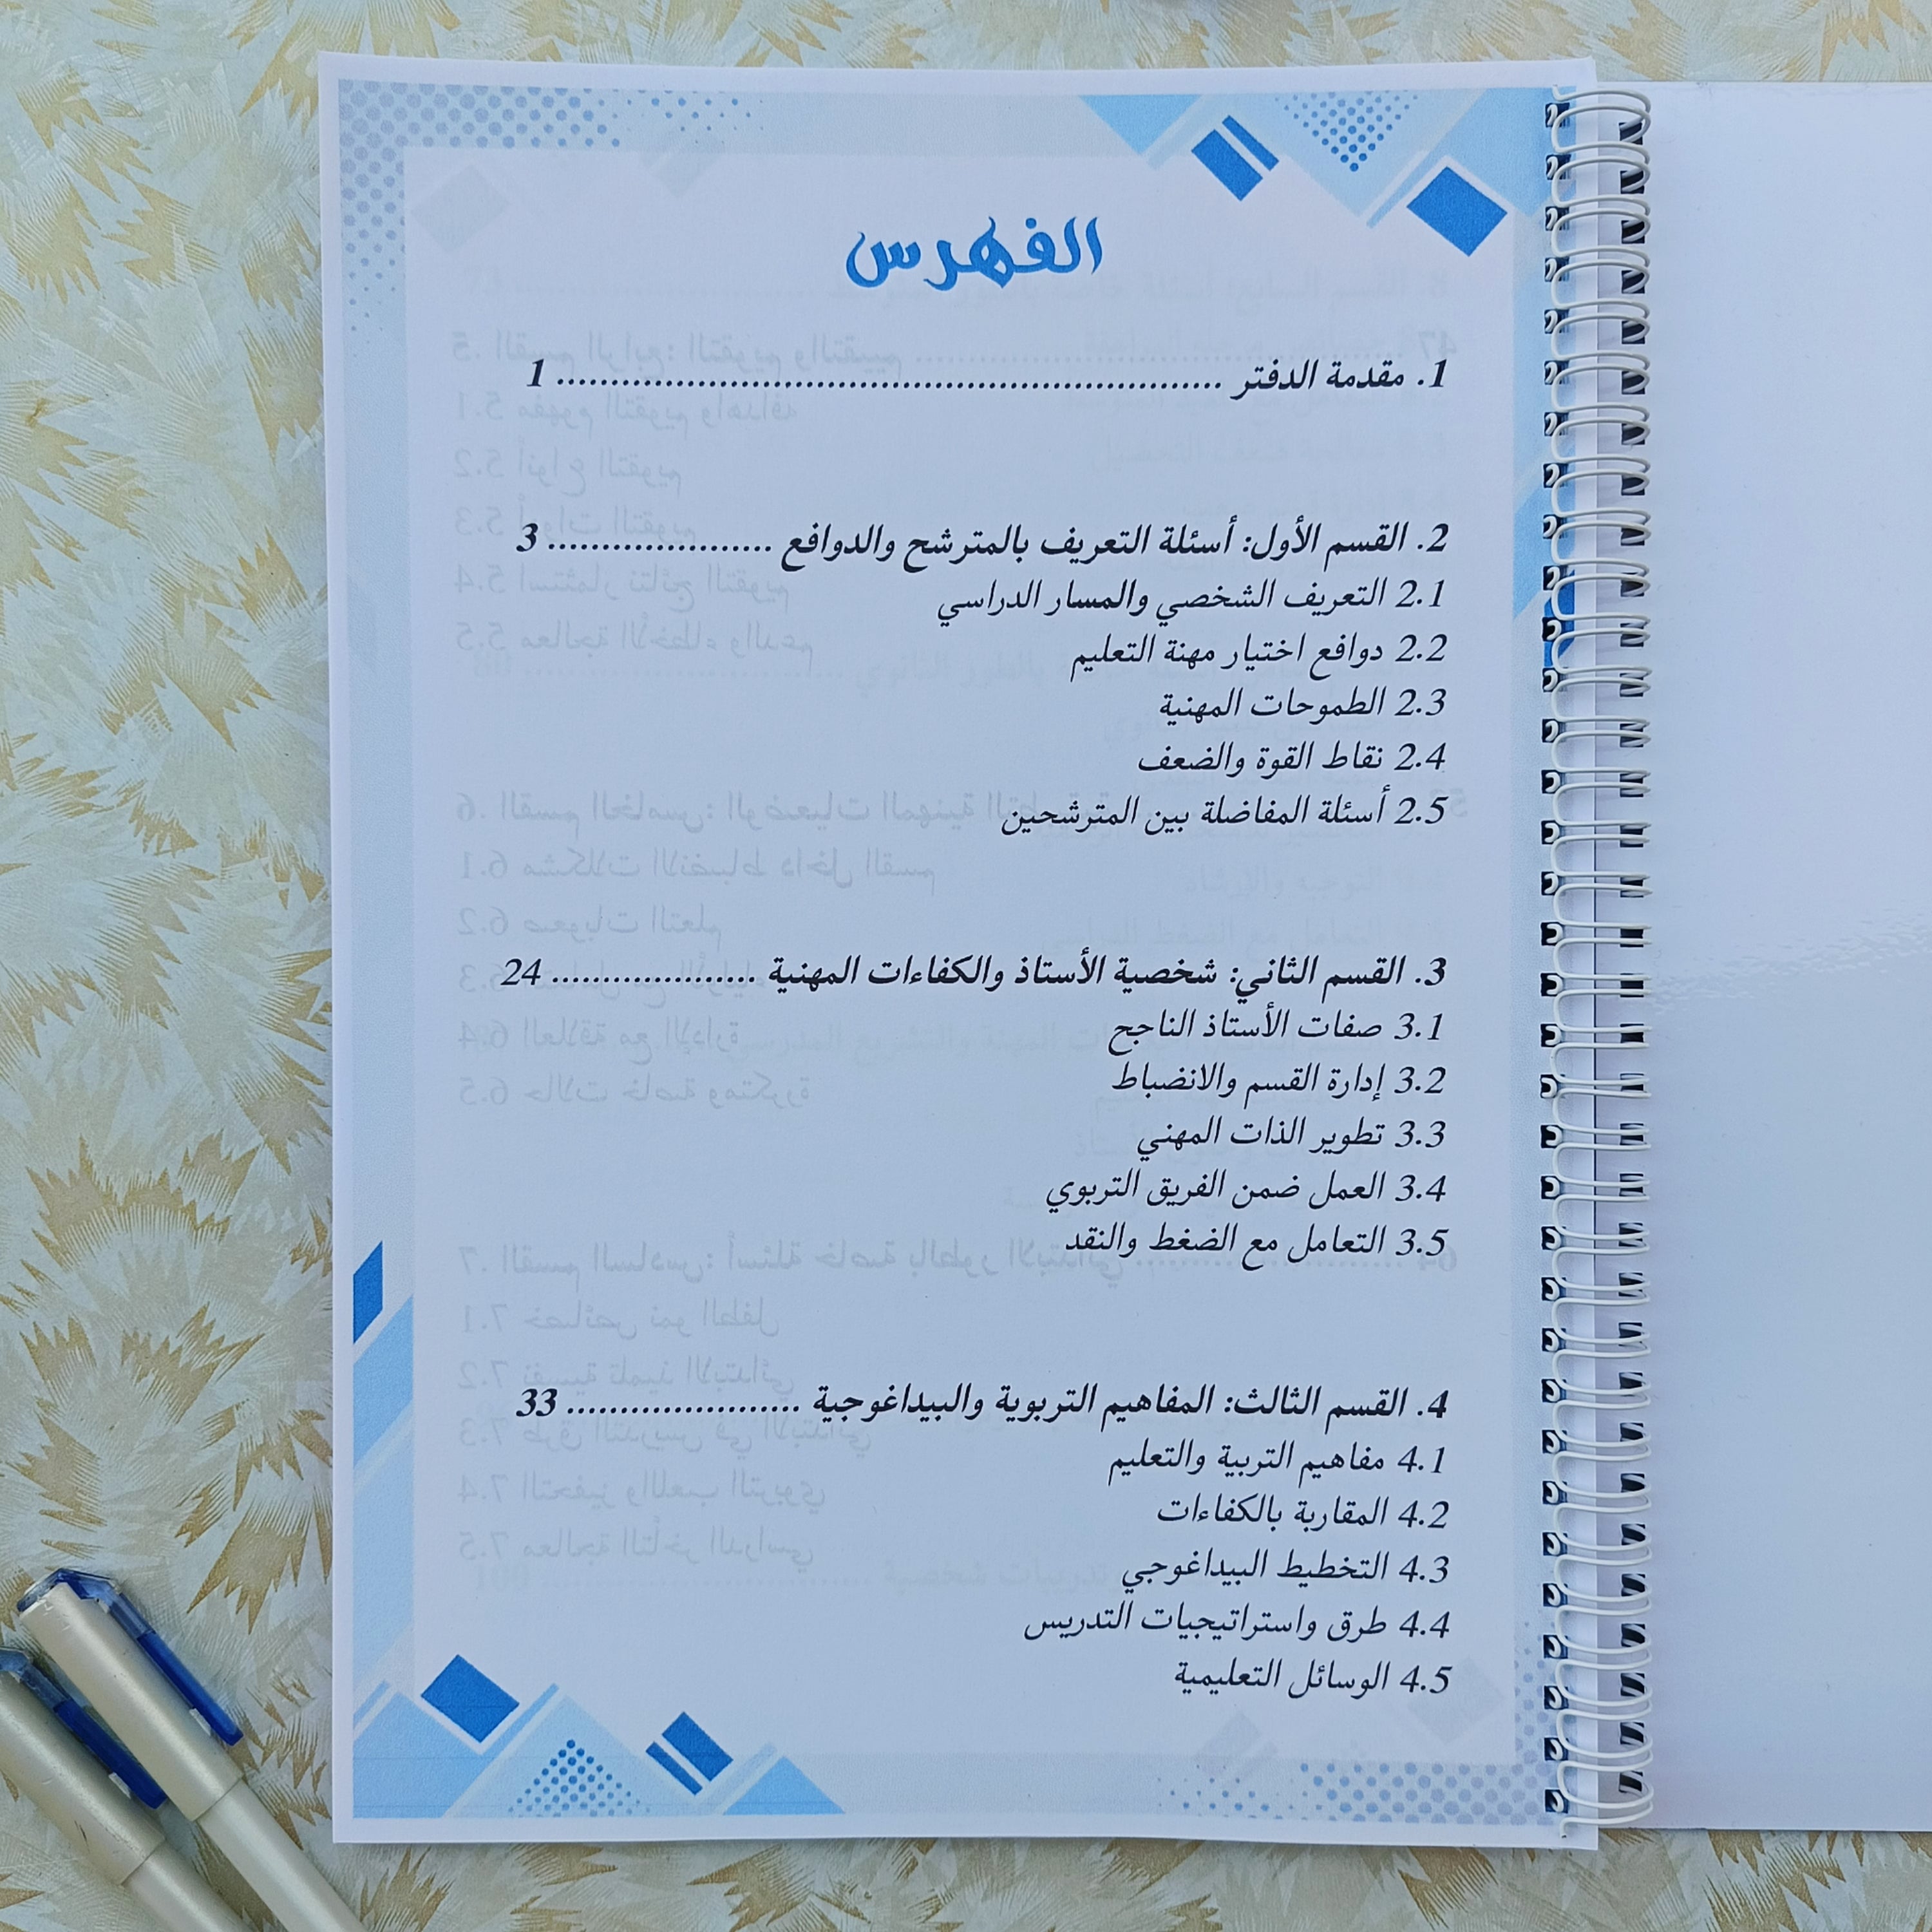 الفهرس
1. مقدمة الدفتر ............................................................... 1
2. القسم الأول: أسئلة التعريف بالمترشح والدوافع ..................... 3
2.1 التعريف الشخصي والمسار الدراسي
2.2 دوافع اختيار مهنة التعليم
2.3 الطموحات المهنية
2.4 نقاط القوة والضعف
2.5 أسئلة المفاضلة بين المترشحين
3. القسم الثاني: شخصية الأستاذ والكفاءات المهنية ................... 24
3.1 صفات الأستاذ الناجح
3.2 إدارة القسم والانضباط
3.3 تطوير الذات المهني
3.4 العمل ضمن الفريق التربوي
3.5 التعامل مع الضغط والنقد
4. القسم الثالث: المفاهيم التربوية والبيداغوجية ...................... 33
4.1 مفاهيم التربية والتعليم
4.2 المقاربة بالكفاءات
4.3 التخطيط البيداغوجي
4.4 طرق واستراتيجيات التدريس
4.5 الوسائل التعليمية